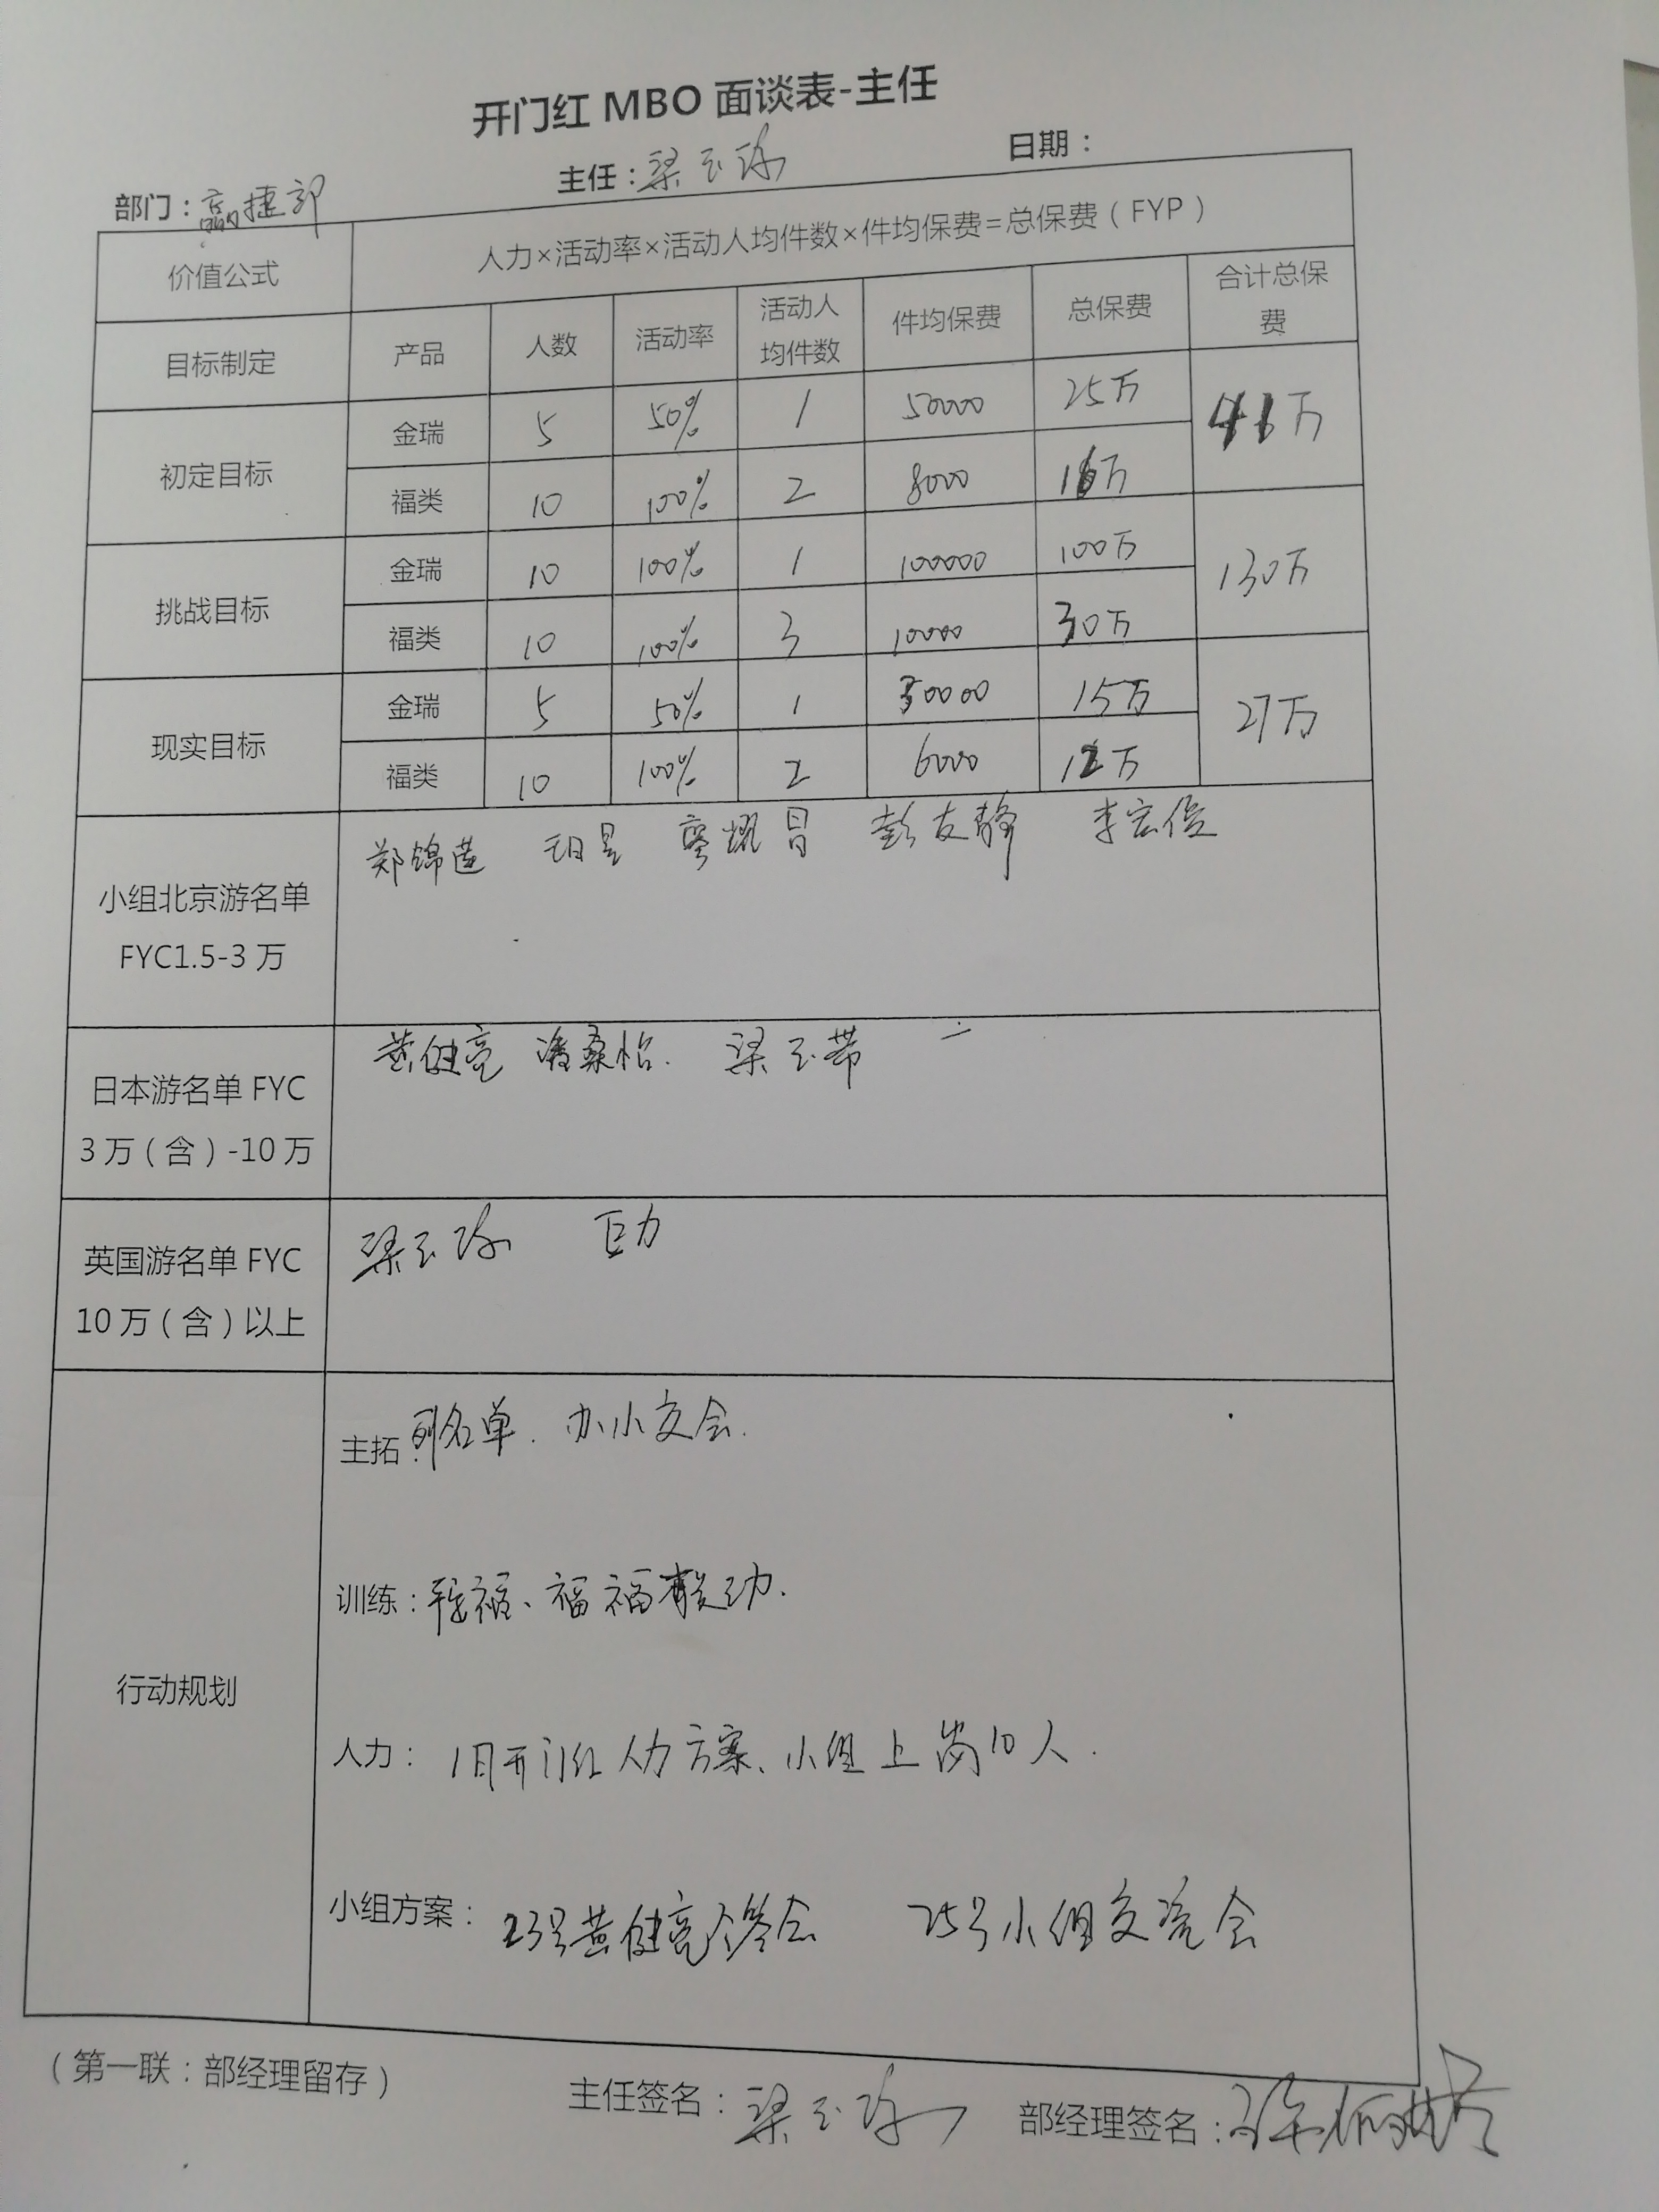 开门红 MBO 面谈表-主任
部门：赢捷部 主任：梁玉珍 日期：
价值公式 人力×活动率×活动人均件数×件均保费=总保费（FYP）
目标制定 产品 人数 活动率 活动人均件数 件均保费 总保费 合计总保费
初定目标 金瑞 5 50% 1 50000 25万 41万
福类 10 100% 2 8000 16万
挑战目标 金瑞 10 100% 1 100000 100万 130万
福类 10 100% 3 10000 30万
现实目标 金瑞 5 50% 1 30000 15万 27万
福类 10 100% 2 6000 12万
小组北京游名单 郑锦莲 彭友静 李宏俊
FYC1.5-3 万
日本游名单 FYC 黄健亮 潘桑怡. 梁玉带
3 万（含）-10 万
英国游名单 FYC 梁玉珍 巨力
10 万（含）以上
行动规划
主拓：列名单. 办小交会.
训练：福、福福联动.
人力：1月开门红人力方案、小组上岗10人.
小组方案：23号黄健亮答会 25号小组交流会
（第一联：部经理留存）
主任签名：梁玉珍 部经理签名：